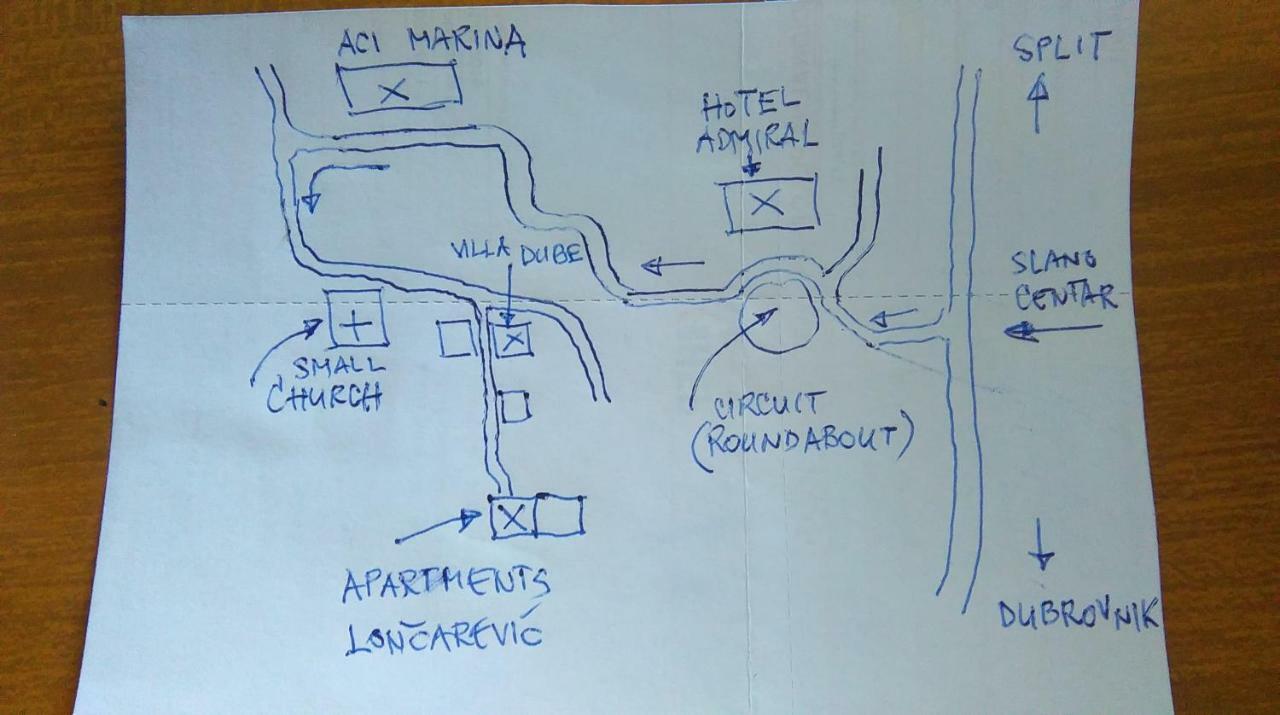 ACI MARINA
SPLIT
HOTEL
ADMIRAL
VILLA DUBE
SLANO
CENTAR
SMALL
CHURCH
CIRCUIT
(ROUNDABOUT)
APARTMENTS
LONČAREVIĆ
DUBROVNIK